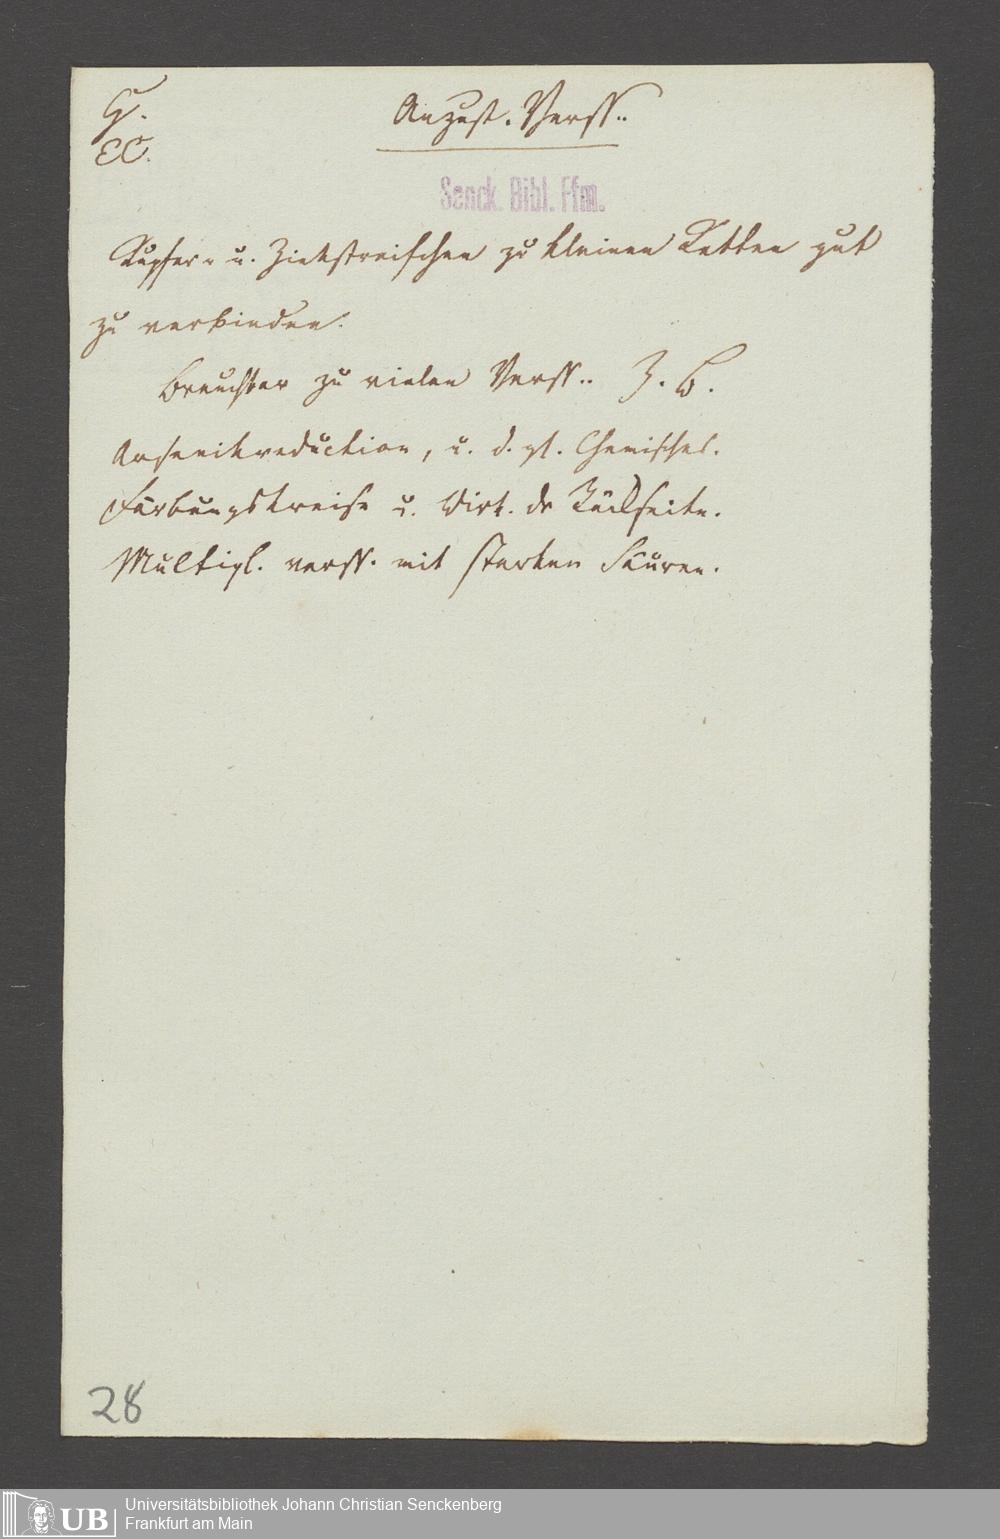 G.
CC.
Anzust. Verss..
Senck. Bibl. Ffm.
Kupfer- u. Zinkstreifchen zu kleinen Ketten gut
zu verbinden.
Brauchbar zu vielen Verss.. Z. B.
Arsenikreduction, u. d. gl. Chemisches.
Färbungskreise u. Wirk. dr Rückseite.
Multipl. verss. mit starken Säuren.
28
UB
Universitätsbibliothek Johann Christian Senckenberg
Frankfurt am Main